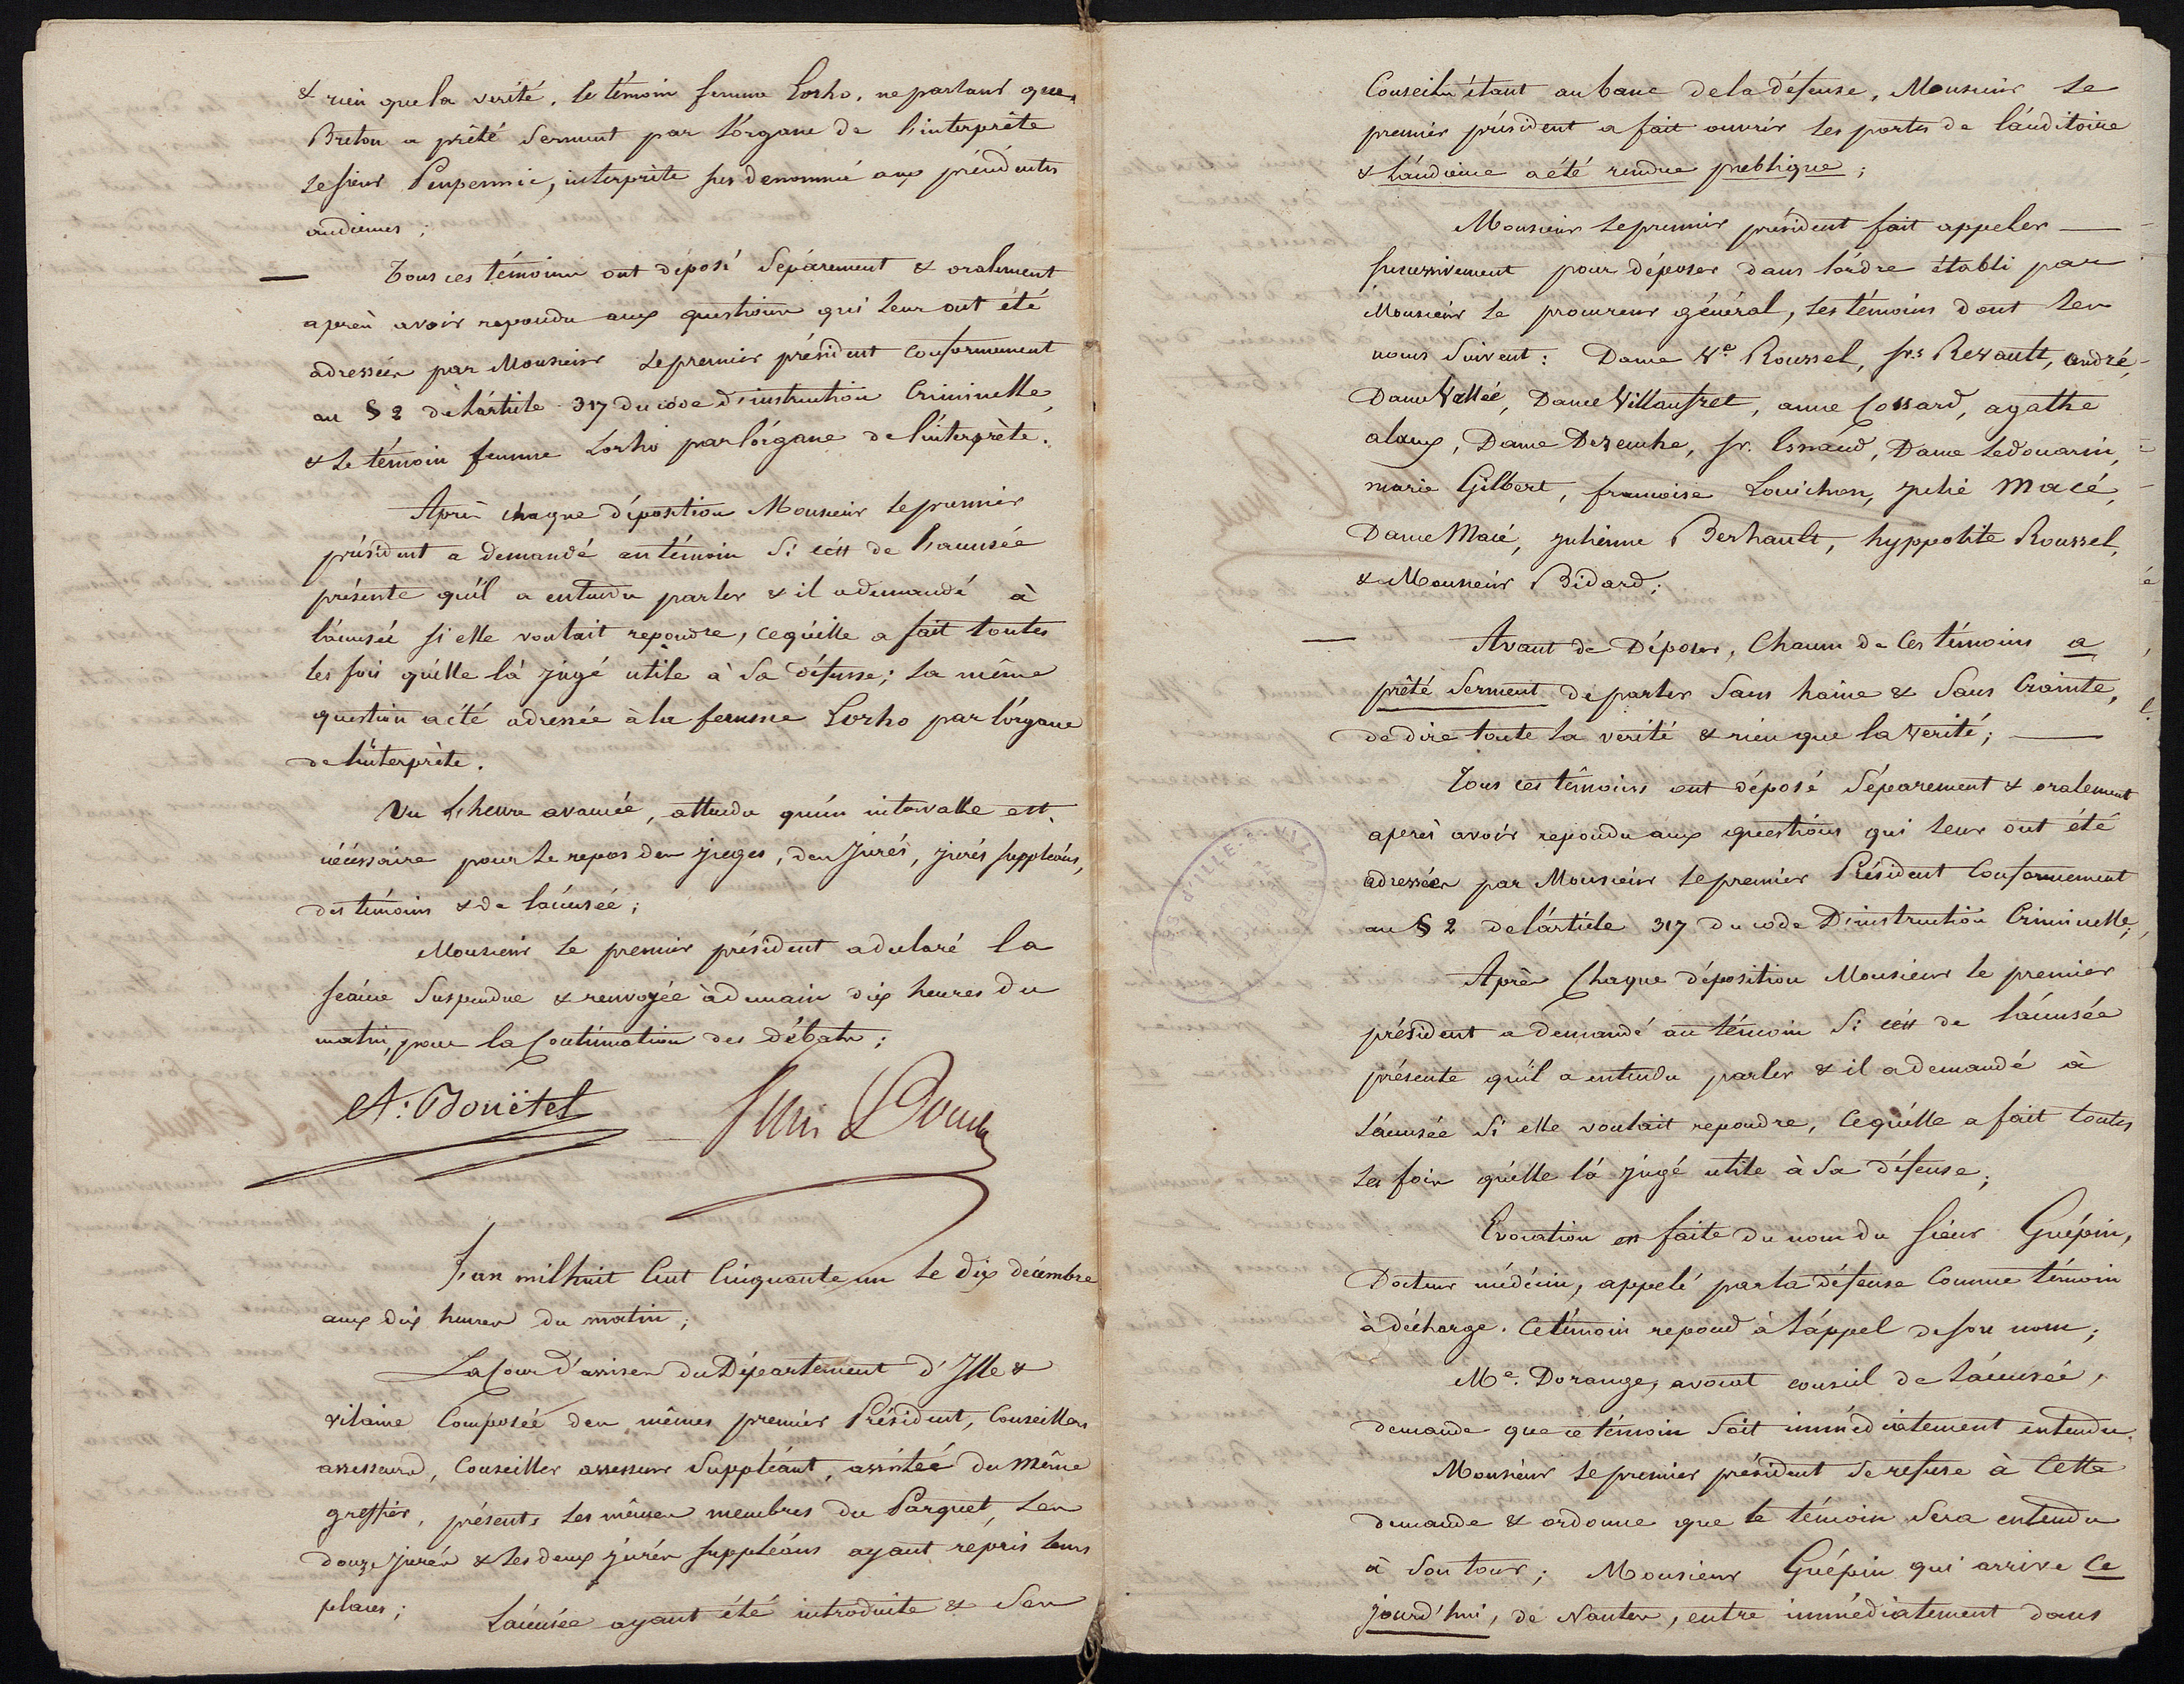 & rien que la verité. le témoin femme Lorho, ne parlant que
Breton a prêté Serment par l'organe de l'interprète
le sieur Penpennic, interprète sus denommé aux précédentes
audiences;
— Tous ces témoins ont déposé Séparement & oralement
après avoir repondu aux questions qui leur ont été
adressées par Monsieur le premier président Conformement
au § 2 de l'article 317 du code d'instruction Criminelle,
& le témoin femme Lorho par l'organe de l'interprète.
Après chaque déposition Monsieur le premier
président a demandé au témoin Si c'est de l'accusée
présente qu'il a entendu parler & il a demandé à
l'accusée si elle voulait repondre, ce qu'elle a fait toutes
les fois qu'elle l'a jugé utile à Sa défense; la même
question a été adressée à la femme Lorho par l'organe
de l'interprète.
Vu l'heure avancée, attendu qu'un intervalle est
nécessaire pour le repos des juges, des Jurés, jurés suppléans,
des témoins & de l'accusée;
Monsieur le premier président a declaré la
séance Suspendue & renvoyée à demain dix heures du
matin, pour la Continuation des débats;
A: Bouëtel
L'an mil huit Cent Cinquante un le dix décembre
aux dix heures du matin;
La Cour d'assises du Département d'Ille &
vilaine Composée des mêmes premier Président, Conseillers
assesseurs, Conseiller assesseur Suppléant, assistée du même
greffier, présents les mêmes membres du Parquet, les
douze jurés & les deux jurés suppléans ayant répris leurs
places;
L'accusée ayant été introduite & Son
Conseil étant au banc de la défense, Monsieur le
premier président a fait ouvrir les portes de l'auditoire
& l'audience a été rendue publique;
Monsieur le premier président fait appeler —
successivement pour déposer dans l'ordre établi par
Monsieur le procureur général, les témoins dont les
noms Suivent: Dame Ve. Roussel, srs Revault, andré,
Dame Vallée, Dame Villaufret, anne Cossard, agathe
aloux, Dame Dezeuche, sr. Esnaud, Dame Ledouarin,
marie Gilbert, francoise Louichon, julie Macé,
Dame Macé, julienne Berhault, hyppolite Roussel,
& Monsieur Bidard;
— Avant de Déposer, Chacun de Ces témoins a
prêté Serment de parler Sans haine & Sans Crainte,
de dire toute la verité & rien que la verité; —
Tous ces témoins ont déposé Séparement & oralement
après avoir repondu aux questions qui leur ont été
adressées par Monsieur le premier Président Conformement
au § 2 de l'article 317 du code D'instruction Criminelle;
Après Chaque déposition Monsieur le premier
président a demandé au témoin Si c'est de l'accusée
présente qu'il a entendu parler & il a demandé à
l'accusée Si elle voulait repondre, Ce qu'elle a fait toutes
les fois qu'elle l'a jugé utile à Sa défense;
Evocation est faite du nom du sieur Guépin,
Docteur médécin, appelé par la défense Comme témoin
à décharge. Ce témoin repond à l'appel de son nom;
Me. Dorange, avocat conseil de l'accusée,
demande que ce témoin Soit immédiatement entendu.
Monsieur le premier président Se refuse à Cette
demande & ordonne que le témoin Sera entendu
à Son tour; Monsieur Guépin qui arrive Ce
jourd'hui, de Nantes, entre immédiatement dans
D'ILLE-&-VILAINE